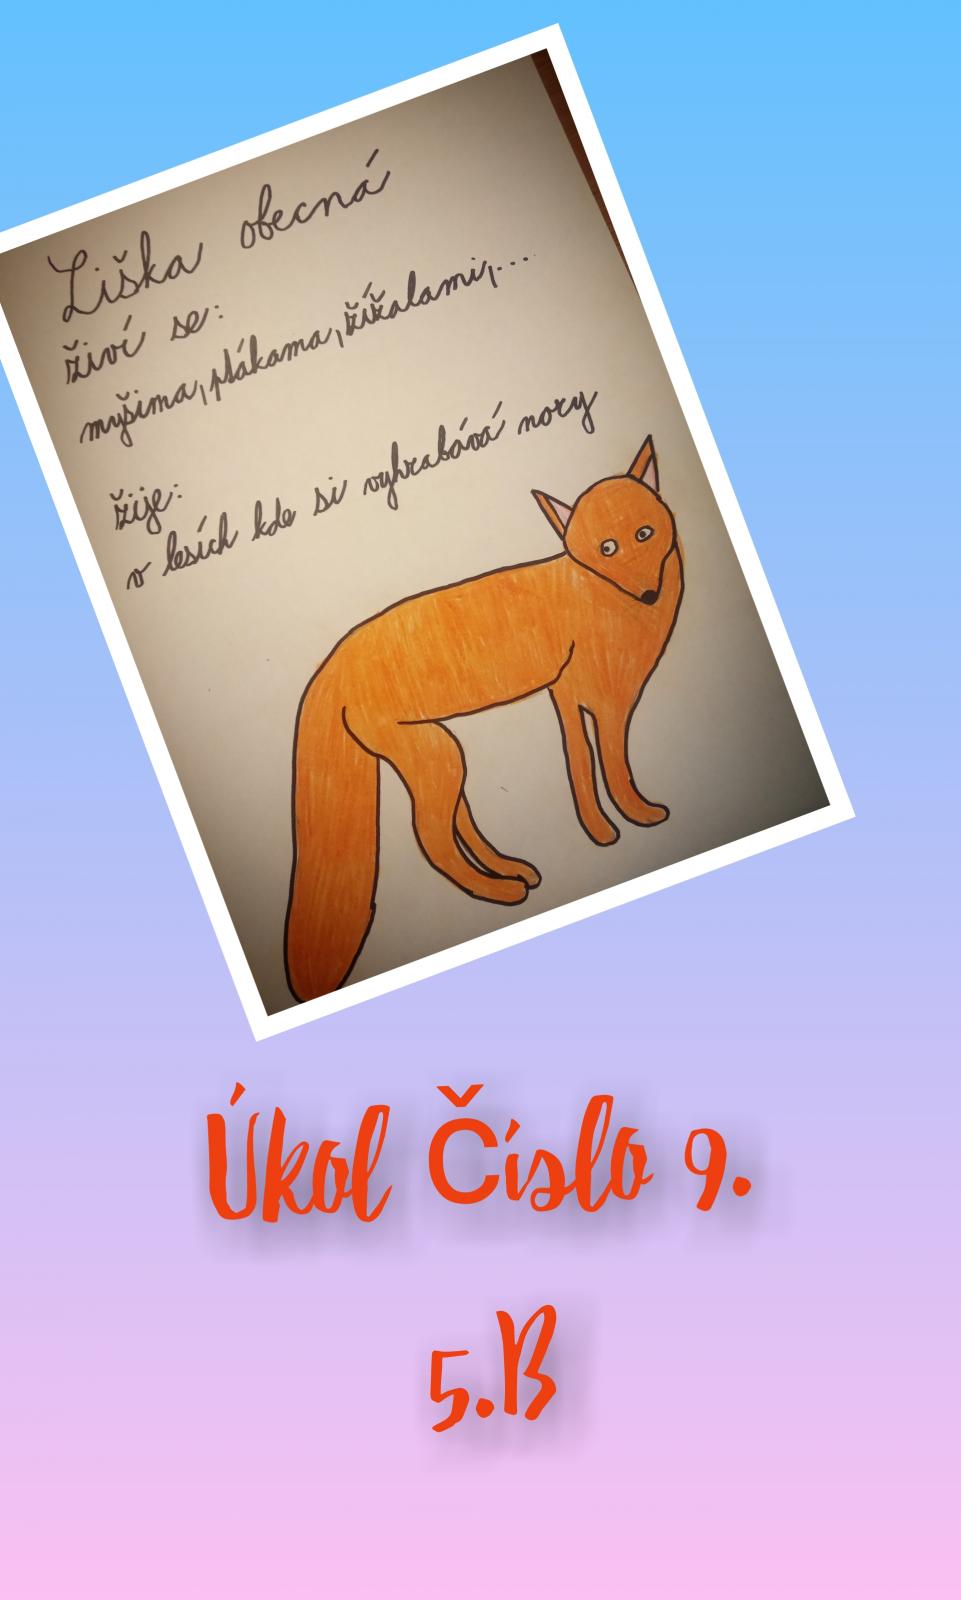 Liška obecná
živí se:
myšima, ptákama, žížalami,...
žije:
v lesích kde si vyhrabává nory
Úkol Číslo 9.
5.B